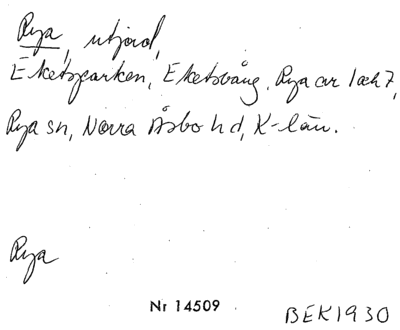 Rya, utjord,
Eketsparken, Eketsvång, Rya nr 1 och 7,
Rya sn, Norra Åsbo hd, K-län.
Rya
Nr 14509
BEK1930